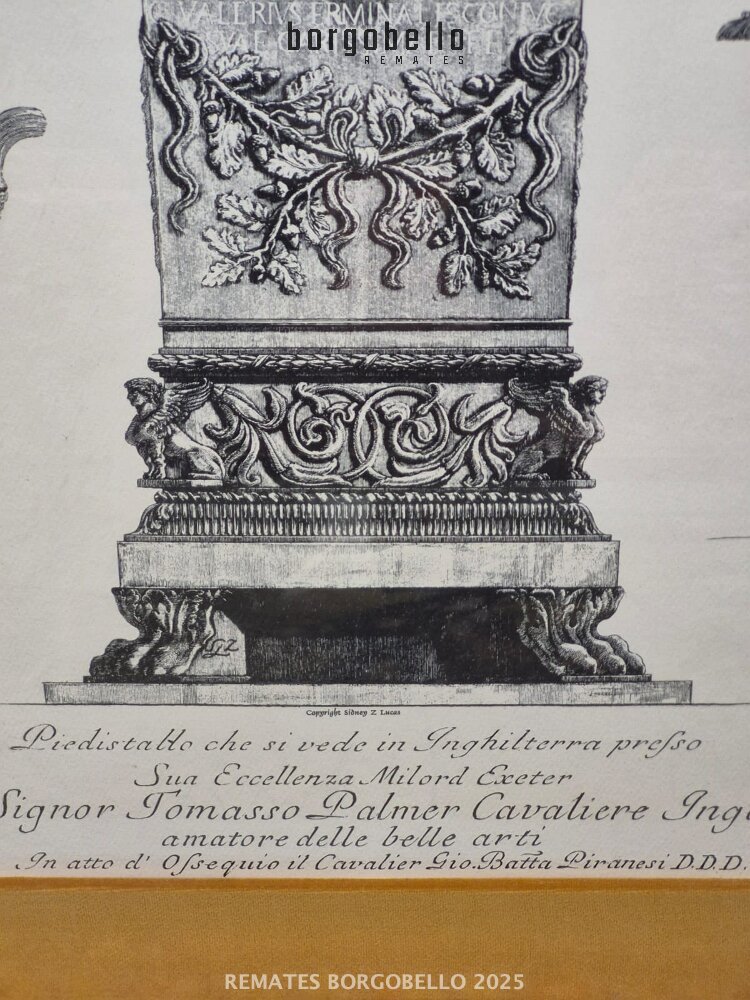 VALERIVS ERMINALIS CONIVG
borgobello
REMATES
Copyright Sidney Z Lucas
Piedistallo che si vede in Inghilterra preſso
Sua Eccellenza Milord Exeter
Signor Tomasso Palmer Cavaliere Ingl
amatore delle belle arti
In atto d' Oſsequio il Cavalier Gio. Batta Piranesi D.D.D.
REMATES BORGOBELLO 2025